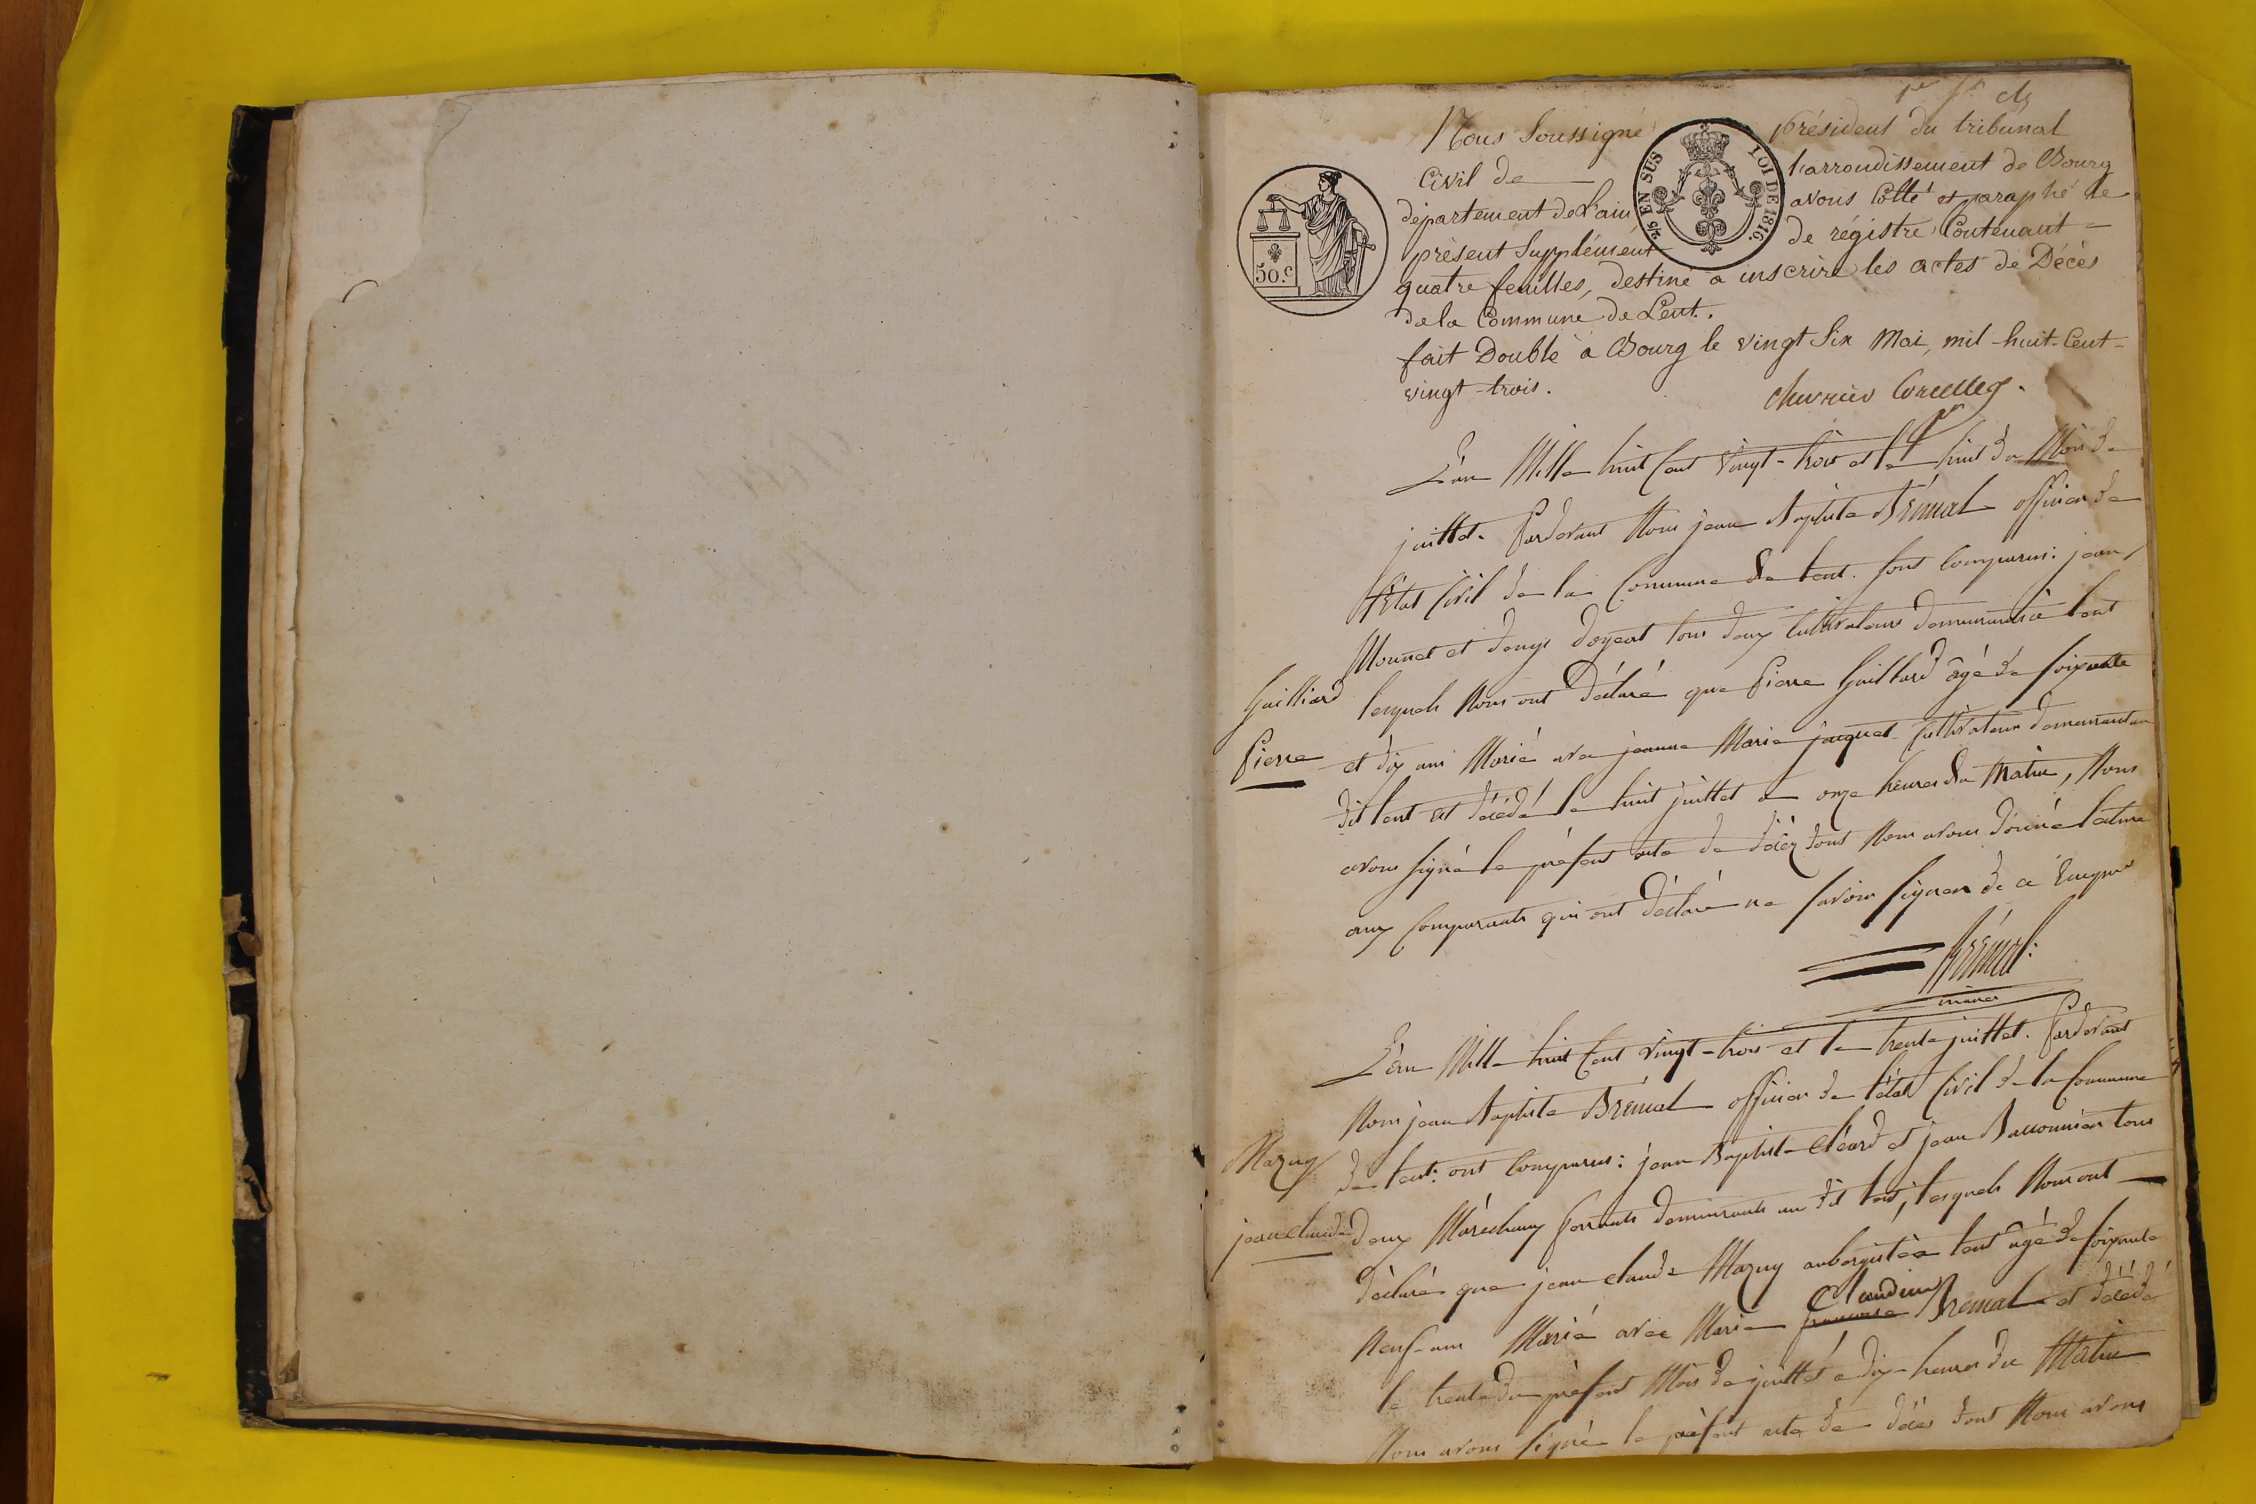 Nous Soussigné président du tribunal
Civil de l'arrondissement de Bourg
département de l'ain avons Cotté et paraphé le
présent Supplément de régistre Contenant
quatre feuilles, destiné a inscrire les actes de Décès
de la Commune de Lent.
fait Double à Bourg le vingt Six Mai, mil-huit-Cent-
vingt-trois.
2/5 EN SUS
LOI DE 1816.
50.c
L'an Mille huit Cent vingt-trois et le huit du Mois de
juillet. Pardevant Nous jean Baptiste Brémal officier de
l'état Civil de la Commune de Lent. sont Comparus: jean
Monnet et denys doyeat tous deux Cultivateurs demeurants à Lent
Gailliard
Pierre
lesquels Nous ont déclaré que Pierre Gaillard âgé de soixante
et dix ans Marié avec jeanne Marie jacquet Cultivateur demeurant au
dit lent est décédé le huit juillet à onze heures du Matin, Nous
avons signé le présent acte de décéz dont Nous avons donné lecture
aux Comparants qui ont déclaré ne savoir signer de ce Enquis
Brémal:
maire
L'an Mille huit Cent vingt-trois et le trente juillet. Pardevant
Nous jean Baptiste Brémal officier de l'état Civil de la Commune
Mazuy
jean claude
de Lent: ont Comparus: jean Baptiste et jean tous
deux Maréchaux ferrants demeurants au dit lent, lesquels Nous ont
déclaré que jean claude Mazuy aubergiste à lent âgé de soixante
Neuf-ans Marié avec Marie françoise Claudine Brémal est décédé
le trente du présent Mois de juillet à dix-heures du Matin
Nous avons signé le présent acte de décès dont Nous avons